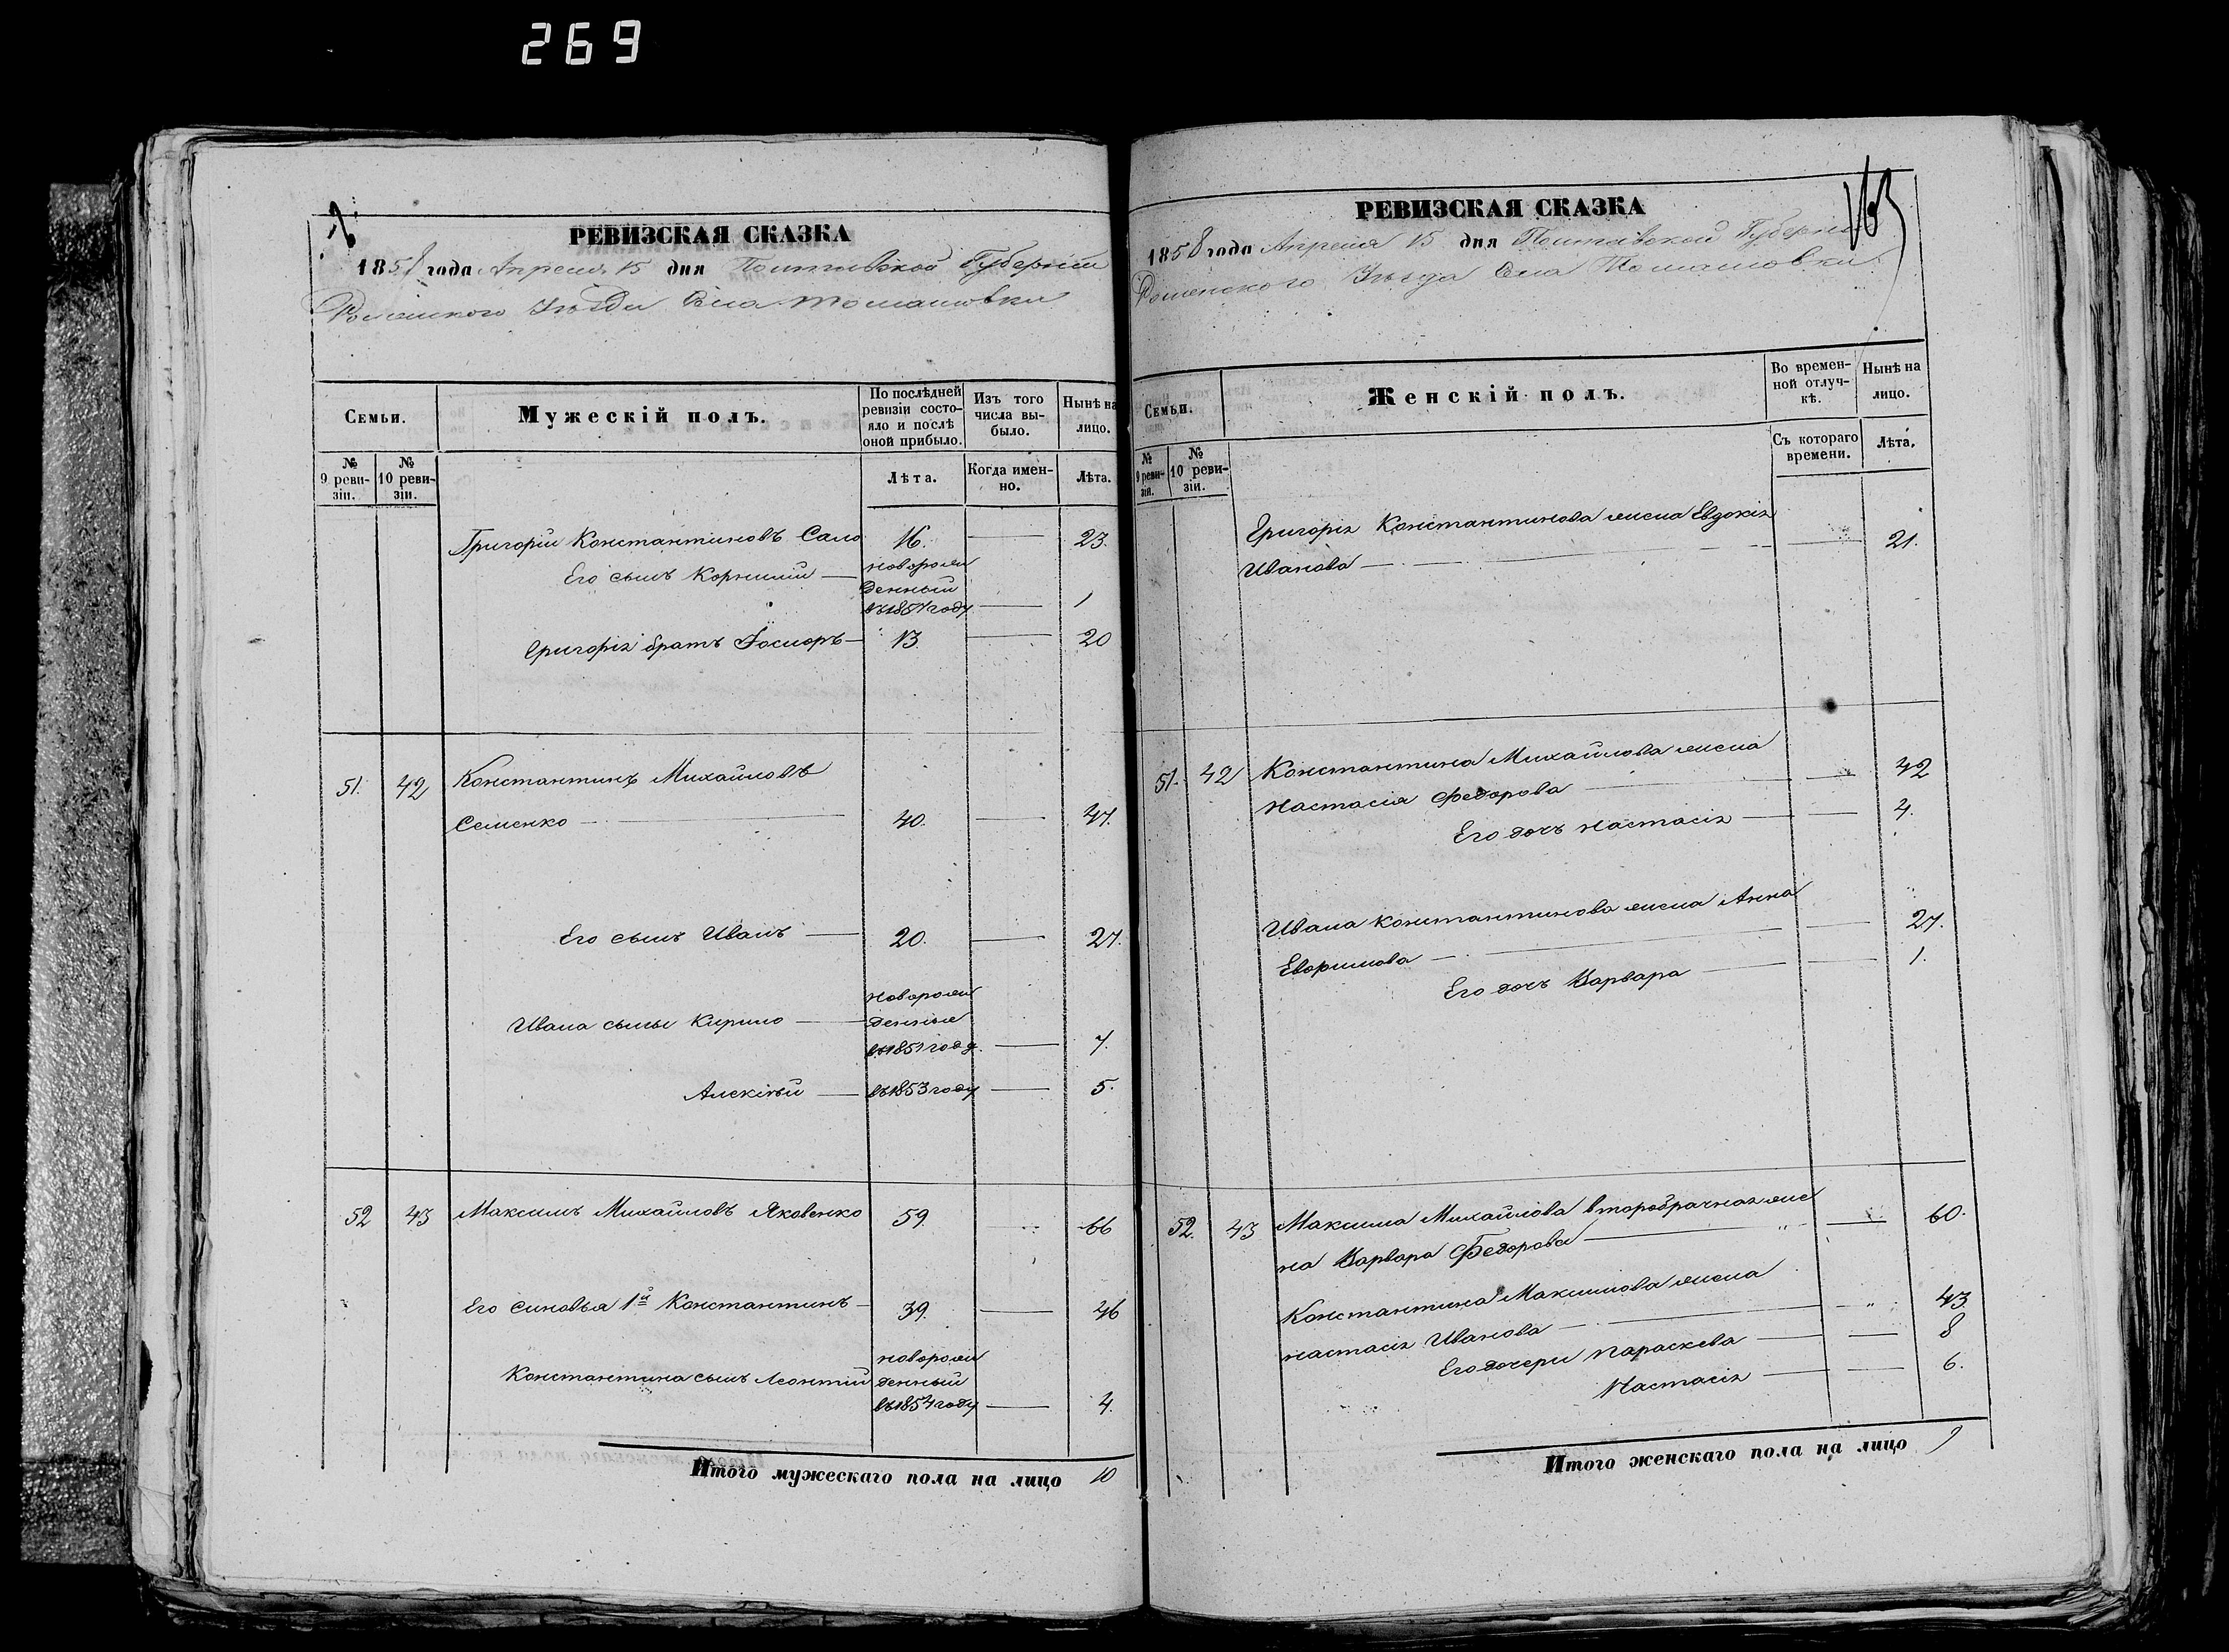 269
РЕВИЗСКАЯ СКАЗКА
1858 года Апреля 15 дня Полтавской Губернии
Роменского Уѣзда Села Томашовки
Семьи.
Мужескій полъ.
По послѣдней ревизіи состо-
яло и послѣ
оной прибыло.
Изъ того
числа вы-
было.
Нынѣ на
лицо.
№
9 реви-
зіи.
№
10 реви-
зіи.
Лѣта.
Когда имен-
но.
Лѣта.
Григорій Константиновъ Сало 16. 23.
новорож
Его сынъ Корнилій
денный
въ 1857 году 1
Григорія братъ 13. 20
51. 42 Константинъ Михайловъ
Семенко 40. 47.
Его сынъ Иванъ 20. 27.
новорож
Ивана сыны Кирило денные
въ 1851 году. 7.
Алексѣй въ 1853 году 5.
52 43 Максимъ Михайловъ Яковенко 59. 66
Его синовья 1й Константинъ 39. 46
новорож
Константина сынъ Леонтій денный
въ 1854 году 4.
Итого мужескаго пола на лицо 10
РЕВИЗСКАЯ СКАЗКА
1858 года Апреля 15 дня Полтавской Губерніи
Роменского Уѣзда Села Томашовки
Семьи.
Женскій полъ.
Во времен-
ной отлуч-
кѣ.
Нынѣ на
лицо.
№
9 реви-
зіи.
№
10 реви-
зіи.
Съ котораго
времени.
Лѣта.
Григорія Константинова жена Евдокія
Иванова 21.
51. 42 Константина Михайлова жена
Настасія Федорова 42
Его дочь Настасія 4.
Ивана Константинова жена Анна
Евфимова 27.
Его дочь Варвара 1.
52. 43 Максима Михайлова второбрачная же
на Варвара Федорова 60.
Константина Максимова жена
Настасія Иванова 43.
Его дочери Параскева 8
Настасія 6.
Итого женскаго пола на лицо 9